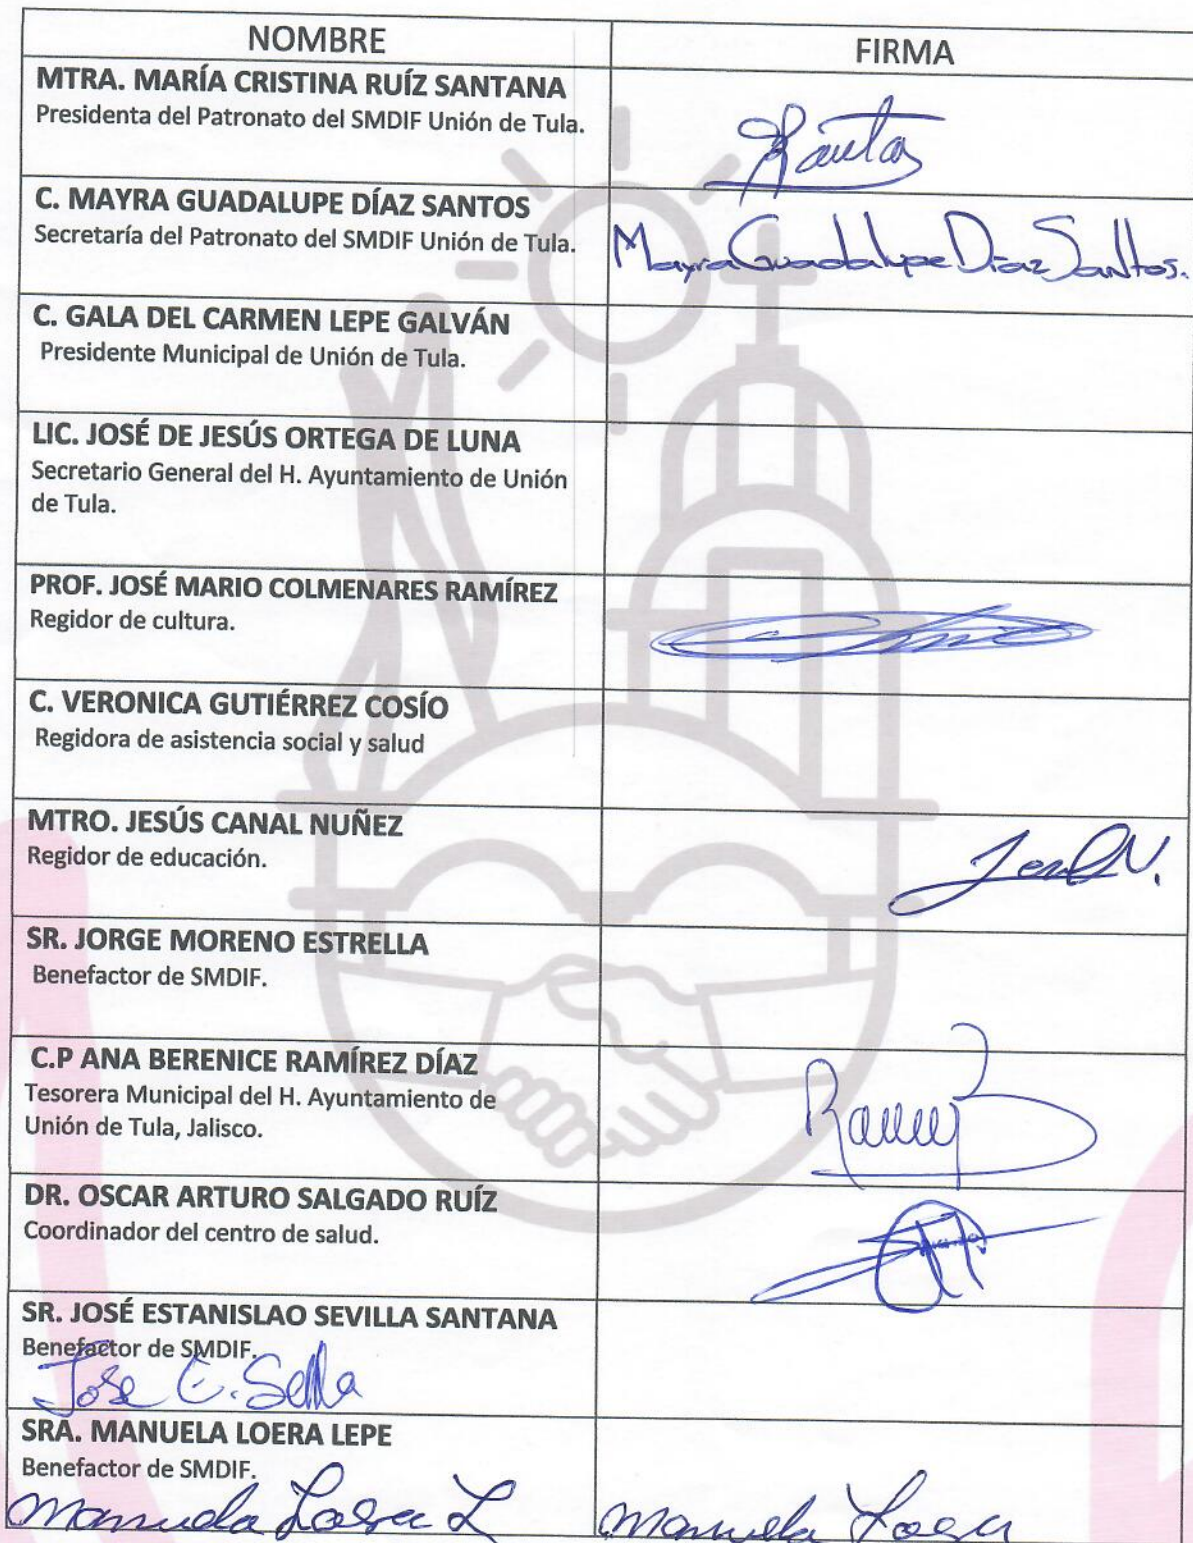 NOMBRE
FIRMA
MTRA. MARÍA CRISTINA RUÍZ SANTANA
Presidenta del Patronato del SMDIF Unión de Tula.
C. MAYRA GUADALUPE DÍAZ SANTOS
Secretaría del Patronato del SMDIF Unión de Tula.
Mayra Guadalupe Diaz Santos.
C. GALA DEL CARMEN LEPE GALVÁN
Presidente Municipal de Unión de Tula.
LIC. JOSÉ DE JESÚS ORTEGA DE LUNA
Secretario General del H. Ayuntamiento de Unión
de Tula.
PROF. JOSÉ MARIO COLMENARES RAMÍREZ
Regidor de cultura.
C. VERONICA GUTIÉRREZ COSÍO
Regidora de asistencia social y salud
MTRO. JESÚS CANAL NUÑEZ
Regidor de educación.
SR. JORGE MORENO ESTRELLA
Benefactor de SMDIF.
C.P ANA BERENICE RAMÍREZ DÍAZ
Tesorera Municipal del H. Ayuntamiento de
Unión de Tula, Jalisco.
DR. OSCAR ARTURO SALGADO RUÍZ
Coordinador del centro de salud.
SR. JOSÉ ESTANISLAO SEVILLA SANTANA
Benefactor de SMDIF.
Jose E.
SRA. MANUELA LOERA LEPE
Benefactor de SMDIF.
Manuela Loera L
Manuela Loera